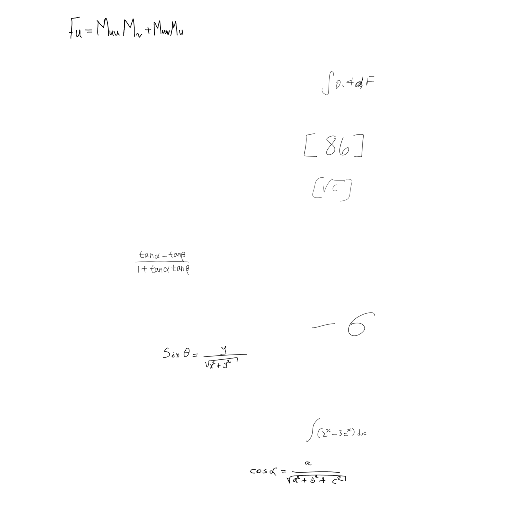 F_u = M_{uu} M_v + M_{uv} M_u
∫ p. + dF
[86]
[√c]
\frac{tan α - tan β}{1 + tan α tan β}
-6
Sin θ = \frac{y}{\sqrt{x^2 + y^2}}
∫(2^x - 3e^x) dx
cos α = \frac{a}{\sqrt{a^2 + b^2 + c^2}}